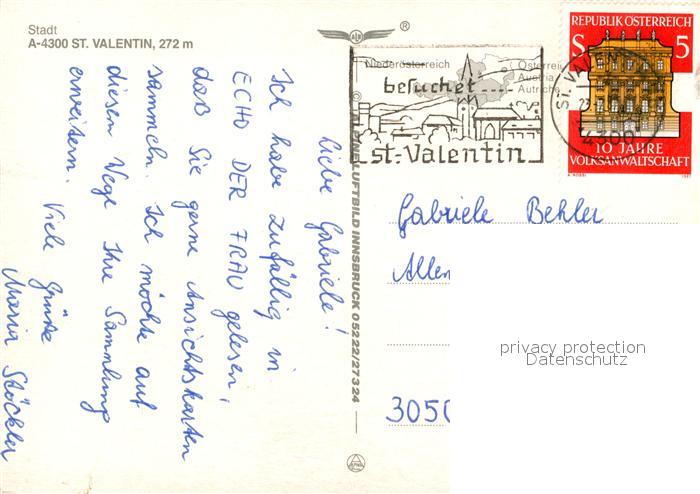 Stadt
A-4300 ST. VALENTIN, 272 m
Liebe Gabriele!
Ich habe zufällig in
ECHO DER FRAU gelesen,
daß Sie gerne Ansichtskarten
sammeln. Ich möchte auf
diesem Wege Ihre Sammlung
erweitern. Viele Grüße
Maria Stöckler
ALPINE LUFTBILD INNSBRUCK 05222/27324
Niederösterreich
Österrei
Austria
Autriche
besuchet
st. Valentin
ST. VALEN
4300
REPUBLIK ÖSTERREICH
S 5
10 JAHRE
VOLKSANWALTSCHAFT
1987
Gabriele Behler
Allen
3050
privacy protection
Datenschutz